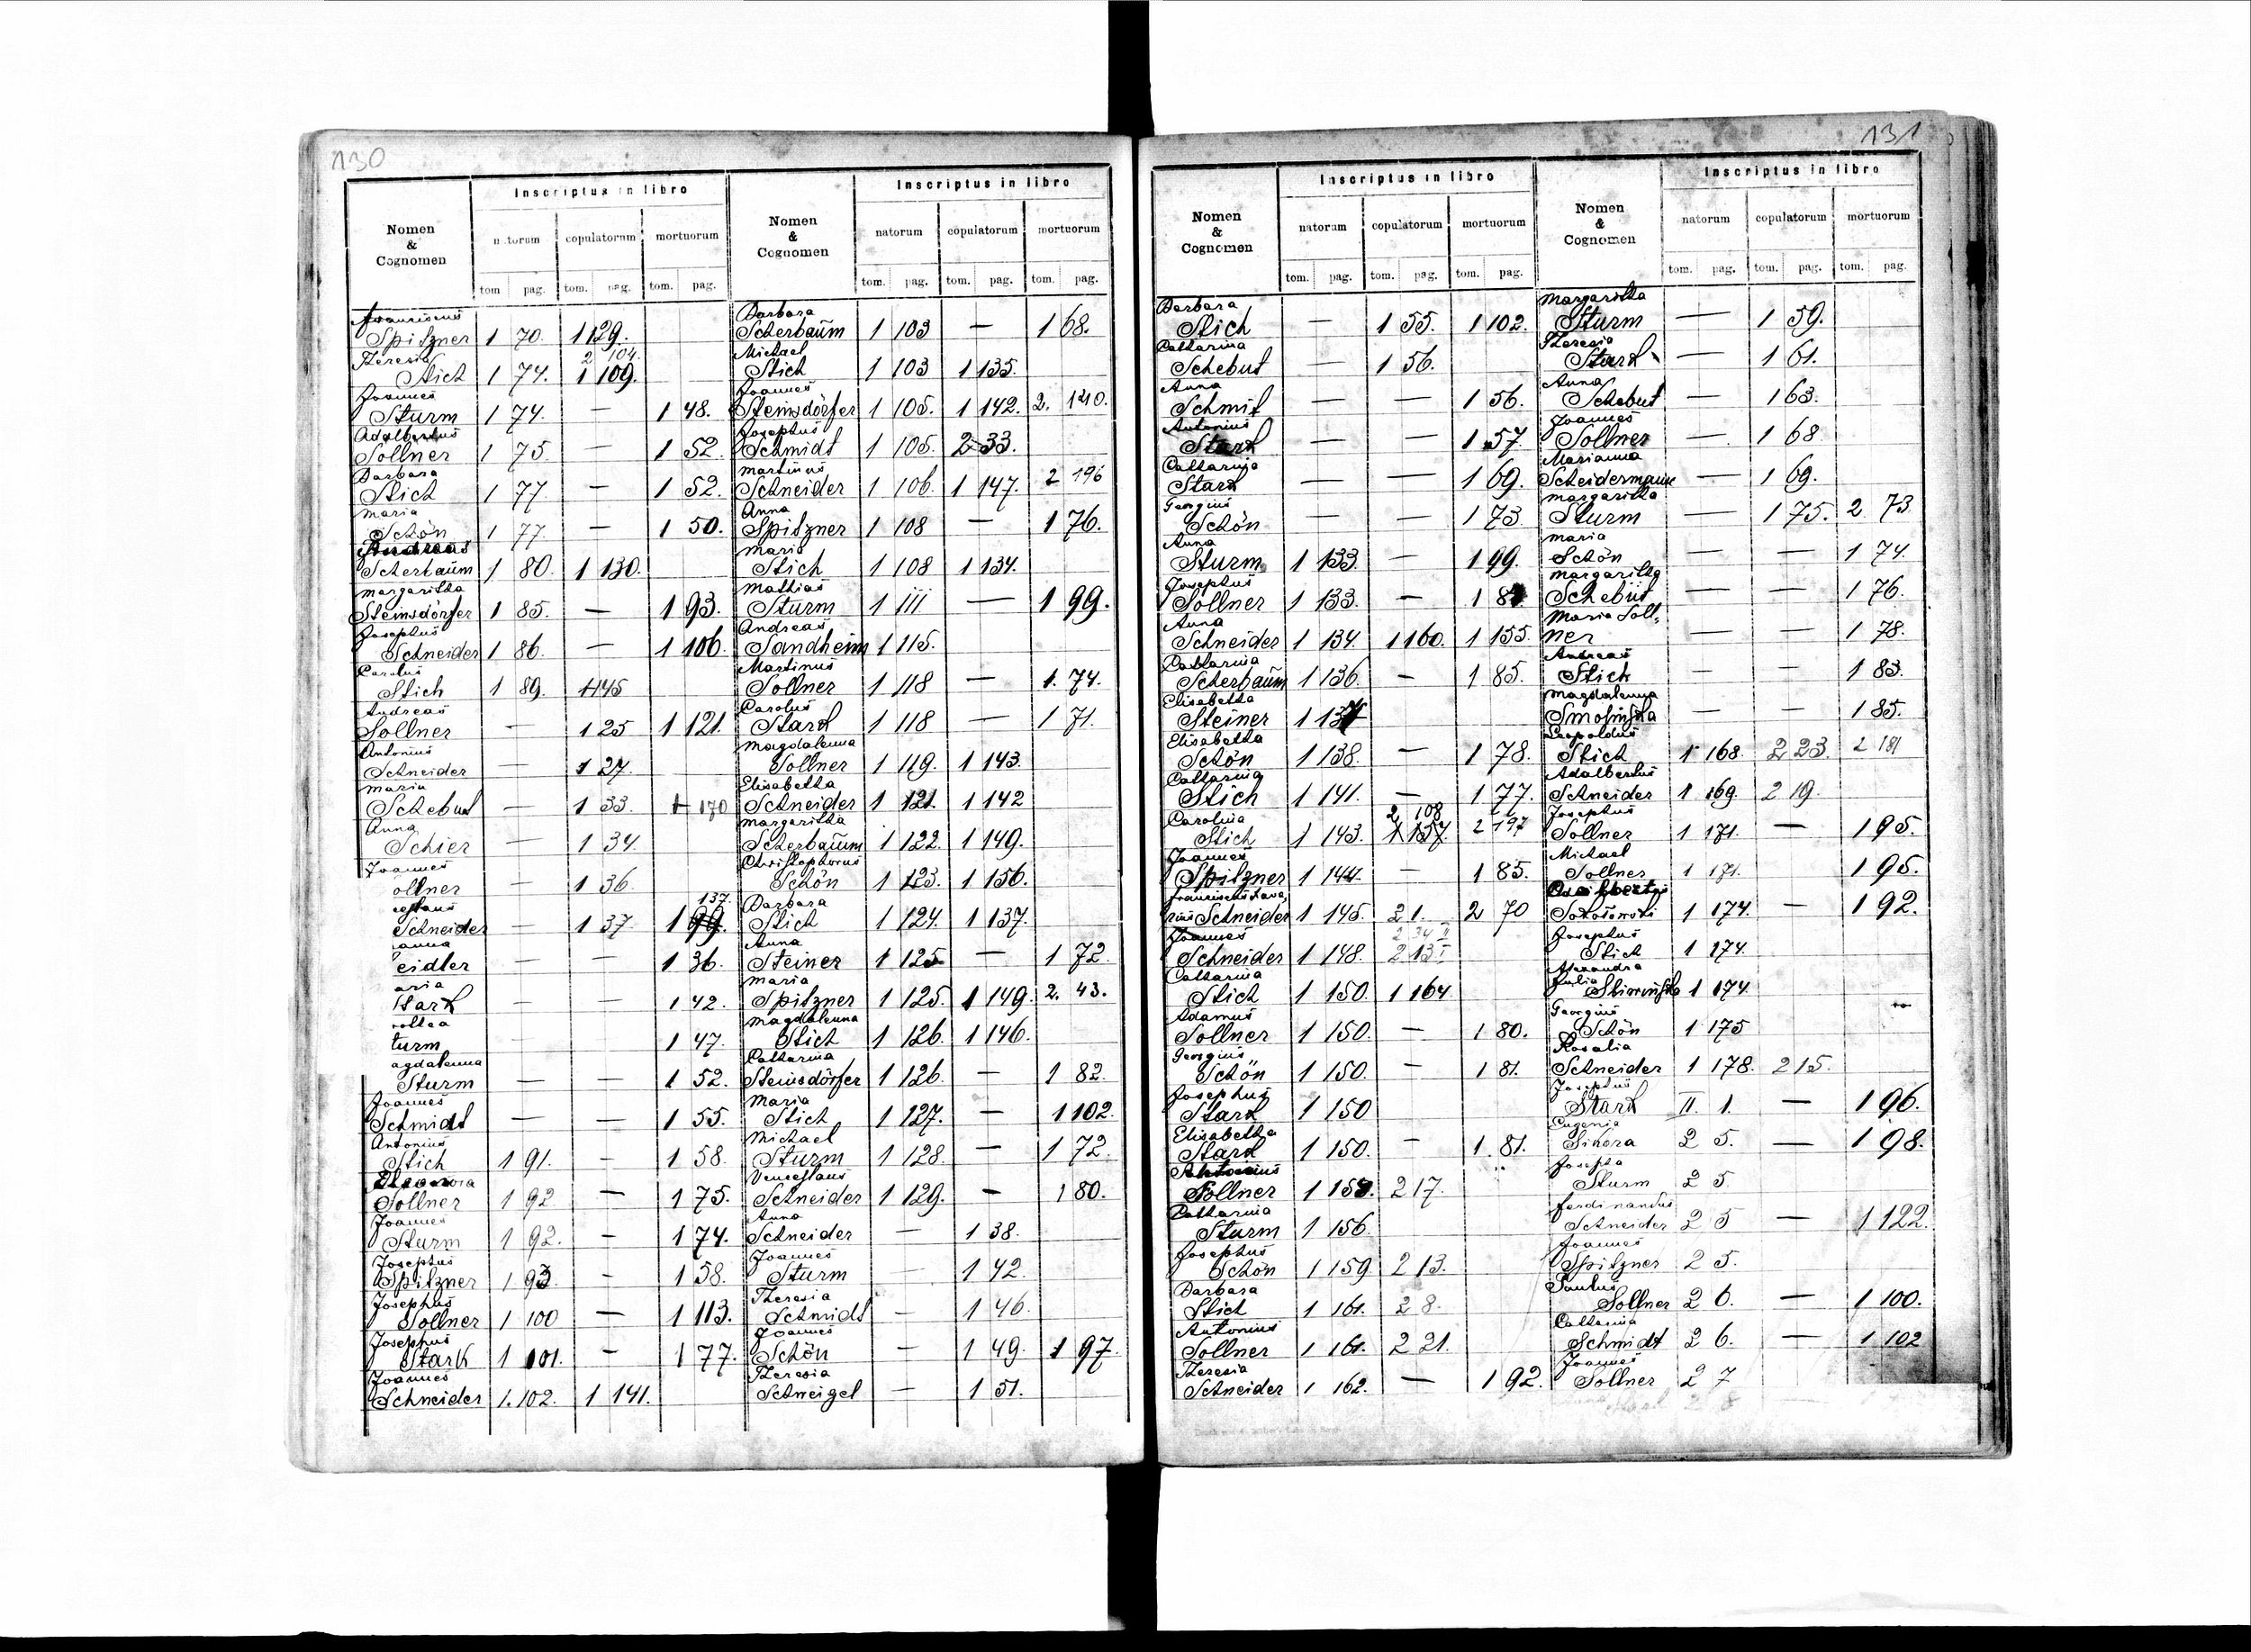 130
Inscriptus in libro
Nomen & Cognomen
natorum copulatorum mortuorum
tom. pag. tom. pag. tom. pag.
Franciscus
Spitzner 1 70. 1 129.
Theresia 2 104.
Stich 1 74. 1 109.
Joannes
Sturm 1 74. — 1 48.
Adalbertus
Sollner 1 75. — 1 52.
Barbara
Stich 1 77. — 1 52.
Maria
Schön 1 77. — 1 50.
Andreas
Scherbaüm 1 80. 1 130.
Margaritha
Steinsdörfer 1 85. — 1 93.
Josephus
Schneider 1 86. — 1 106.
Carolus
Stich 1 89. 1 145
Andreas
Sollner — 1 25 1 121.
Antonius
Schneider — 1 27.
Maria
Schebut — 1 33. 1 170
Anna
Schier — 1 34.
Joannes
ollner — 1 36.
ceslaus 137.
Schneider — 1 37. 1 99.
anna
eidler — — 1 36.
aria
Stark — — 1 42.
rothea
turm — — 1 47.
agdalenna
Sturm — — 1 52.
Joannes
Schmidt — — 1 55.
Antonius
Stich 1 91. — 1 58.
Eleonora
Sollner 1 92. — 1 75.
Joannes
Sturm 1 92. — 1 74.
Josephus
Spitzner 1 93. — 1 58.
Josephus
Sollner 1 100 — 1 113.
Josephus
Stark 1 101. — 1 77.
Joannes
Schneider 1. 102. 1 141.
Inscriptus in libro
Nomen & Cognomen
natorum copulatorum mortuorum
tom. pag. tom. pag. tom. pag.
Barbara
Scherbaüm 1 103 — 1 68.
Michael
Stich 1 103 1 135.
Joannes
Steinsdörfer 1 105. 1 142. 2. 140.
Josephus
Schmidt 1 105. 2 33.
Martinus
Schneider 1 106. 1 147. 2 196
Anna
Spitzner 1 108 — 1 76.
Maria
Stich 1 108 1 134.
Mathias
Sturm 1 111 — 1 99.
Andreas
Sandheim 1 115.
Martinus
Sollner 1 118 — 1. 74.
Carolus
Stark 1 118 — 1 71.
Magdalenna
Sollner 1 119. 1 143.
Elisabetha
Schneider 1 121. 1 142
Margaritha
Scherbaüm 1 122. 1 149.
Christophorus
Schön 1 123. 1 156.
Barbara
Stich 1 124. 1 137.
Anna
Steiner 1 125. — 1 72.
Maria
Spitzner 1 125. 1 149. 2. 43.
Magdalenna
Stich 1 126. 1 146.
Catharina
Steinsdörfer 1 126. — 1 82.
Maria
Stich 1 127. — 1 102.
Michael
Sturm 1 128. — 1 72.
Venceslaus
Schneider 1 129. — 1 80.
Anna
Schneider — 1 38.
Joannes
Sturm — 1 42.
Theresia
Schmidt — 1 46.
Joannes
Schön — 1 49. 1 97.
Theresia
Schneigel — 1 51.
131
Inscriptus in libro
Nomen & Cognomen
natorum copulatorum mortuorum
tom. pag. tom. pag. tom. pag.
Barbara
Stich — 1 55. 1 102.
Catharina
Schebut — 1 56.
Anna
Schmit — — 1 56.
Antonius
Stark — — 1 57.
Catharina
Stark — — 1 69.
Georgius
Schön — — 1 73
Anna
Sturm 1 133. — 1 99.
Josephus
Sollner 1 133. — 1
Anna
Schneider 1 134. 1 160. 1 155.
Catharina
Scherbaüm 1 136. — 1 85.
Elisabetha
Steiner 1 137
Elisabetha
Schön 1 138. — 1 78.
Catharina
Stich 1 141. — 1 77.
Carolina 2 108
Stich 1 143. 1 157. 2 197
Joannes
Spitzner 1 144. — 1 85.
Schneider 1 145. 2 1. 2 70
Joannes 2 34 II
Schneider 1 148. 2 13 I
Catharina
Stich 1 150. 1 164.
Adamus
Sollner 1 150. — 1 80.
Georgius
Schön 1 150. — 1 81.
Josephus
Stark 1 150
Elisabetha
Stark 1 150. — 1. 81.
Antonius
Sollner 1 2 17.
Catharina
Sturm 1 156.
Josephus
Schön 1 159 2 13.
Barbara
Stich 1 161. 2 8.
Antonius
Sollner 1 161. 2 21.
Theresia
Schneider 1 162. — 1 92.
Inscriptus in libro
Nomen & Cognomen
natorum copulatorum mortuorum
tom. pag. tom. pag. tom. pag.
Margaritha
Sturm — 1 59.
Theresia
Stark — 1 61.
Anna
Schebut — 1 63.
Joannes
Sollner — 1 68
Marianna
Scheidermann — 1 69.
Margaritha
Sturm — 1 75. 2 73
Maria
Schön — — 1 74.
Margaritha
Schebut — — 1 76.
Maria Soll-
ner — — 1 78.
Andreas
Stich — — 1 83.
Magdalenna
Smolinska — — 1 85.
Leopoldus
Stich 1 168. 2 23. 2 181
Adalbertus
Schneider 1 169. 2 19.
Josephus
Sollner 1 171. — 1 95.
Michael
Sollner 1 171. 1 95.
Sokołowski 1 174. — 1 92.
Josephus
Stich 1 174.
Alexandra
Julia
1 174.
Georgius
Schön 1 175
Rosalia
Schneider 1 178. 2 15.
Josephus
Stark II. 1. — 1 96.
Eugenia
Sikora 2 5. — 1 98.
Josepha
Sturm 2 5.
Ferdinandus
Schneider 2 5 — 1 122.
Joannes
Spitzner 2 5.
Paulus
Sollner 2 6. — 1 100.
Catharina
Schmidt 2 6. — 1 102
Joannes
Sollner 2 7